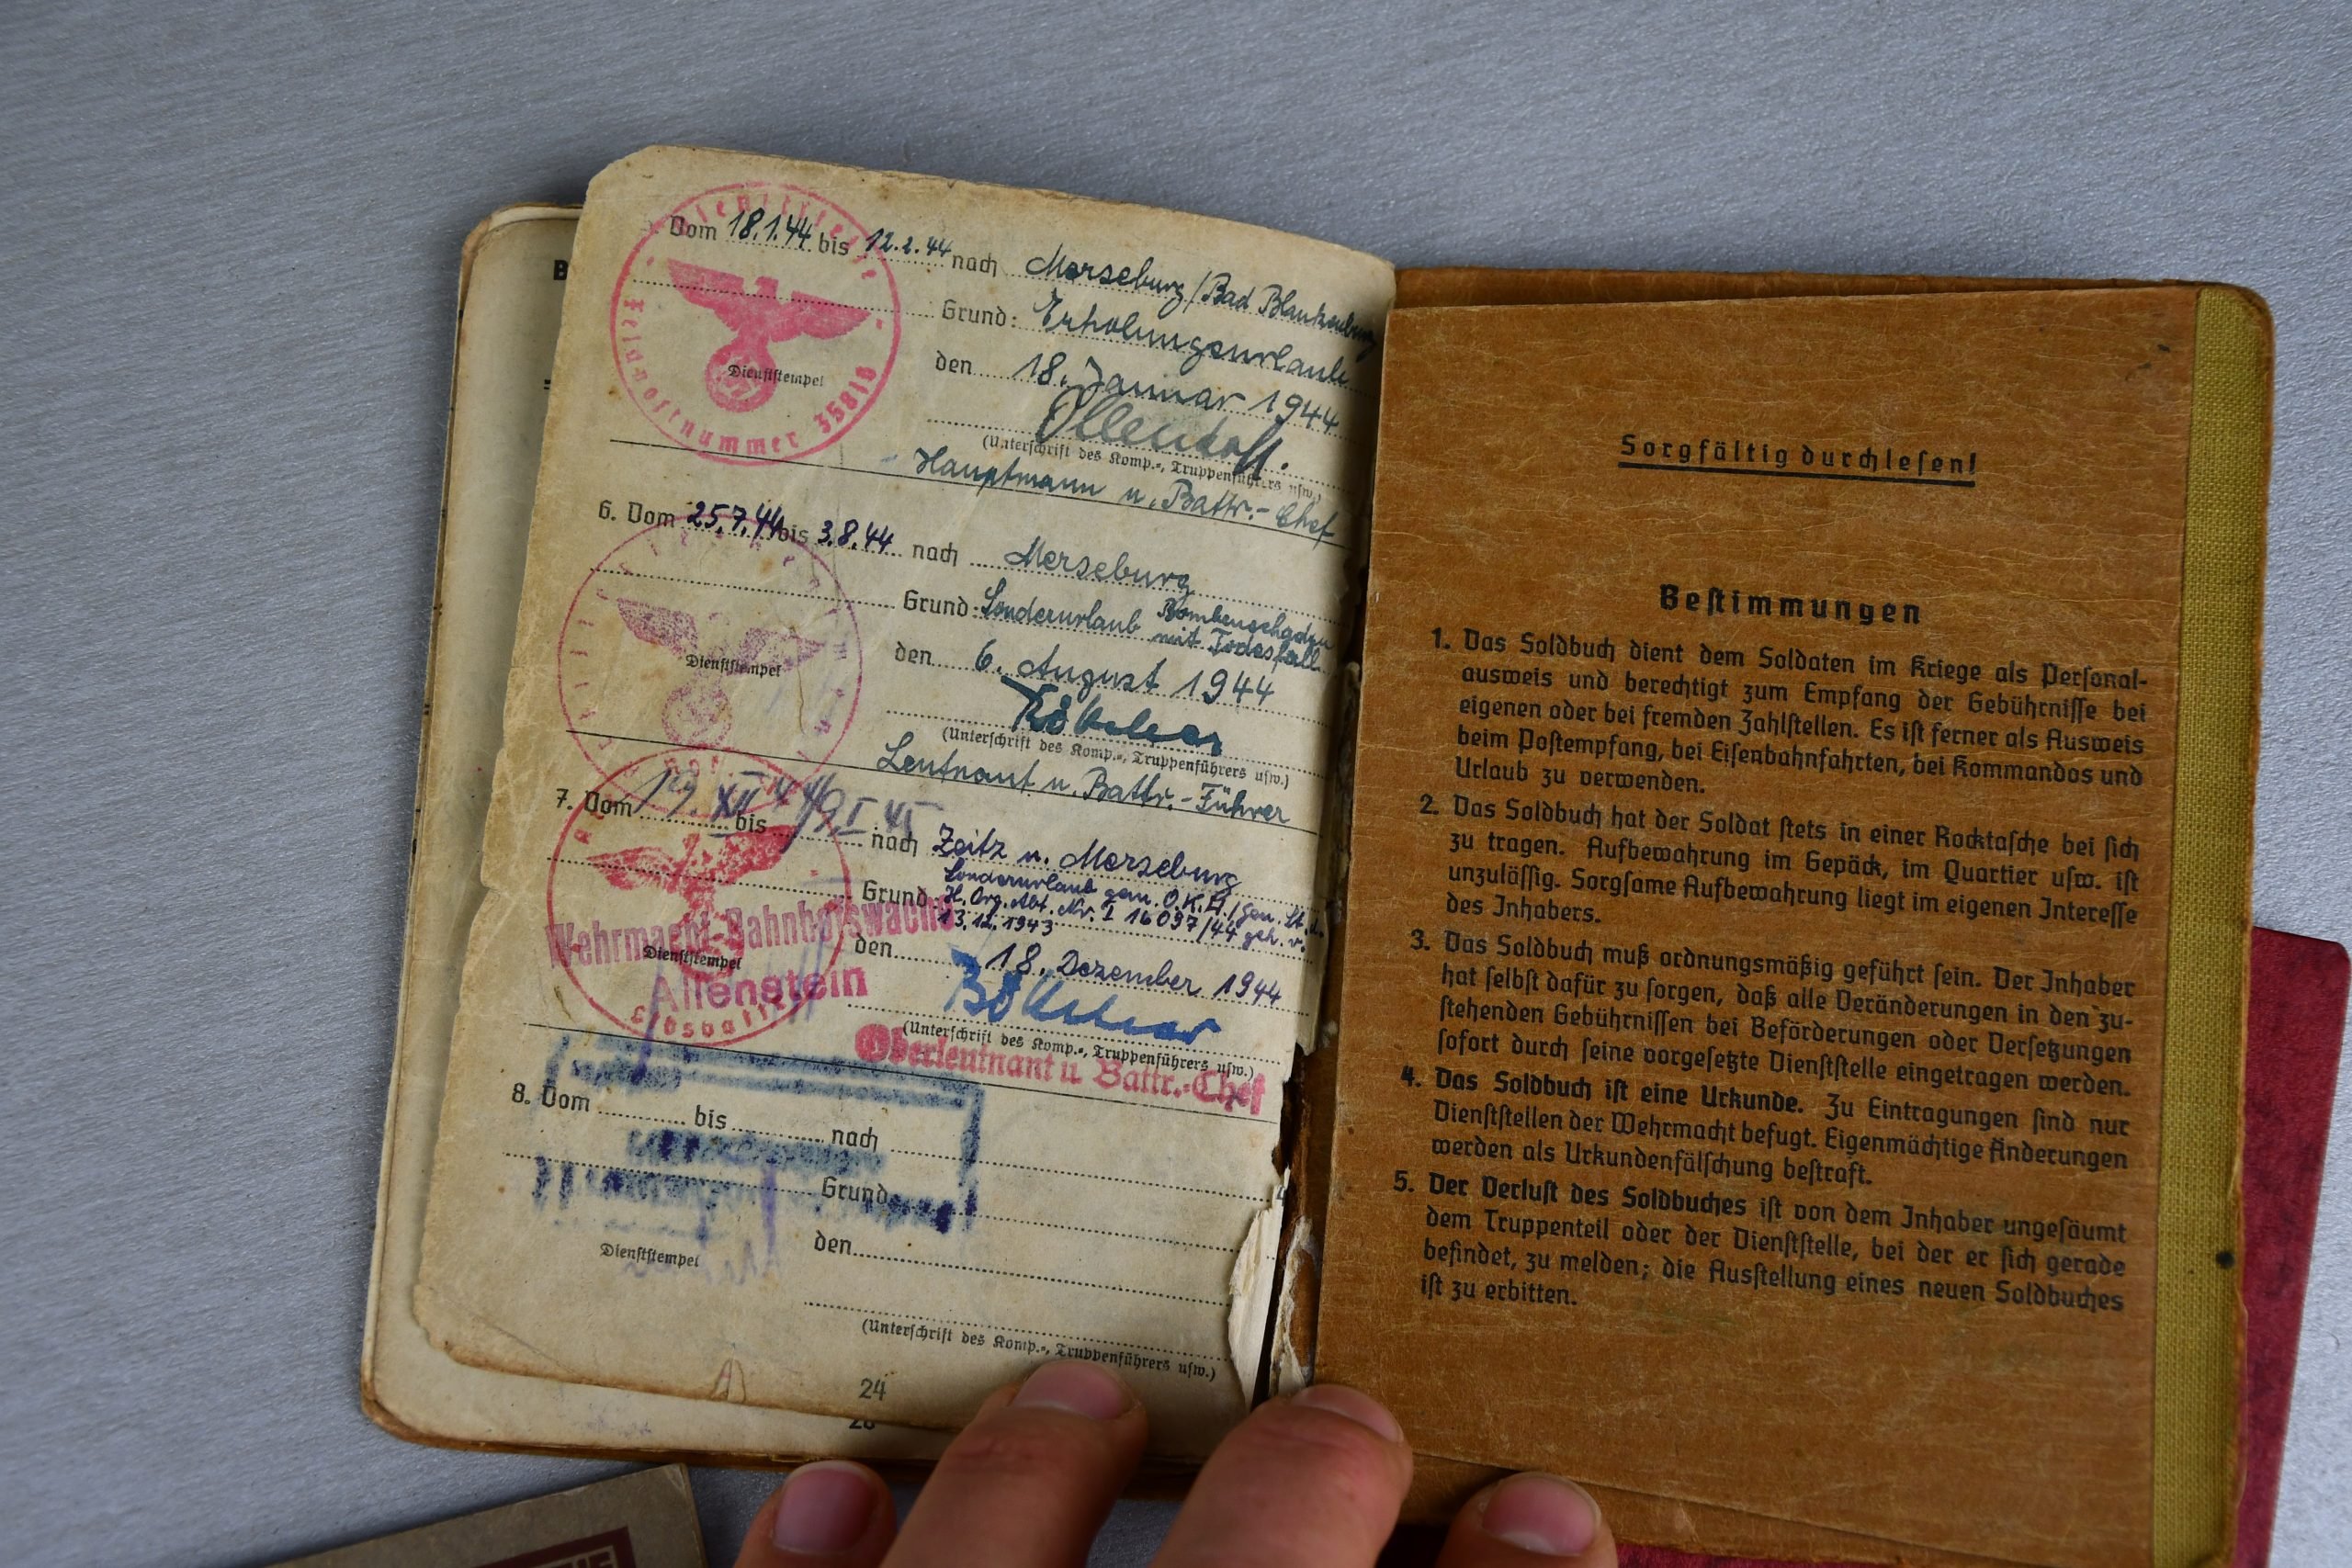 Vom 18.1.44 bis 12.2.44 nach Merseburg/Bad Blankenburg
Grund: Erholungsurlaub
den 18. Januar 1944
(Unterschrift des Komp.-, Truppenführers usw.)
Hauptmann u. Battr.-Chef
Dienststempel
Feldpostnummer
6. Vom 25.7.44 bis 3.8.44 nach Merseburg
Grund: Sonderurlaub Bombenschaden
mit Todesfall
den 6. August 1944
(Unterschrift des Komp.-, Truppenführers usw.)
Leutnant u. Battr.-Führer
Dienststempel
7. Vom 19. XII 44 bis 9. I 45 nach Zeitz u. Merseburg
Grund Sonderurlaub gem. O.K.H./Gen. St. d.
H. Org. Abt. Nr. I 16097/44 geh. v.
13.12.1943
den 18. Dezember 1944
(Unterschrift des Komp.-, Truppenführers usw.)
Oberleutnant u. Battr.-Chef
Wehrmacht-Bahnhofswache
Allenstein
Dienststempel
8. Vom bis nach
Grund
den
Dienststempel
(Unterschrift des Komp.-, Truppenführers usw.)
24
26
Sorgfältig durchlesen!
Bestimmungen
1. Das Soldbuch dient dem Soldaten im Kriege als Personal-
ausweis und berechtigt zum Empfang der Gebührnisse bei
eigenen oder bei fremden Zahlstellen. Es ist ferner als Ausweis
beim Postempfang, bei Eisenbahnfahrten, bei Kommandos und
Urlaub zu verwenden.
2. Das Soldbuch hat der Soldat stets in einer Rocktasche bei sich
zu tragen. Aufbewahrung im Gepäck, im Quartier usw. ist
unzulässig. Sorgsame Aufbewahrung liegt im eigenen Interesse
des Inhabers.
3. Das Soldbuch muß ordnungsmäßig geführt sein. Der Inhaber
hat selbst dafür zu sorgen, daß alle Veränderungen in den zu-
stehenden Gebührnissen bei Beförderungen oder Versetzungen
sofort durch seine vorgesetzte Dienststelle eingetragen werden.
4. Das Soldbuch ist eine Urkunde. Zu Eintragungen sind nur
Dienststellen der Wehrmacht befugt. Eigenmächtige Änderungen
werden als Urkundenfälschung bestraft.
5. Der Verlust des Soldbuches ist von dem Inhaber ungesäumt
dem Truppenteil oder der Dienststelle, bei der er sich gerade
befindet, zu melden; die Ausstellung eines neuen Soldbuches
ist zu erbitten.